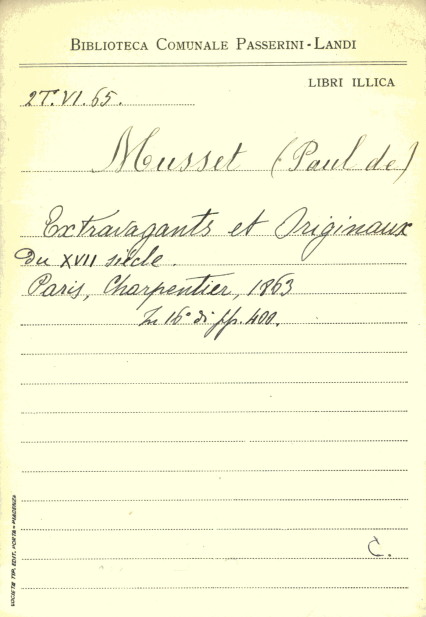 BIBLIOTECA COMUNALE PASSERINI-LANDI
LIBRI ILLICA
2T.VI.65.
Musset (Paul de)
Extravagants et Originaux
du XVII siècle.
Paris, Charpentier, 1863
In 16° di pp. 400.
C.
SOCIETÀ TIP. EDIT. PORTA - PIACENZA